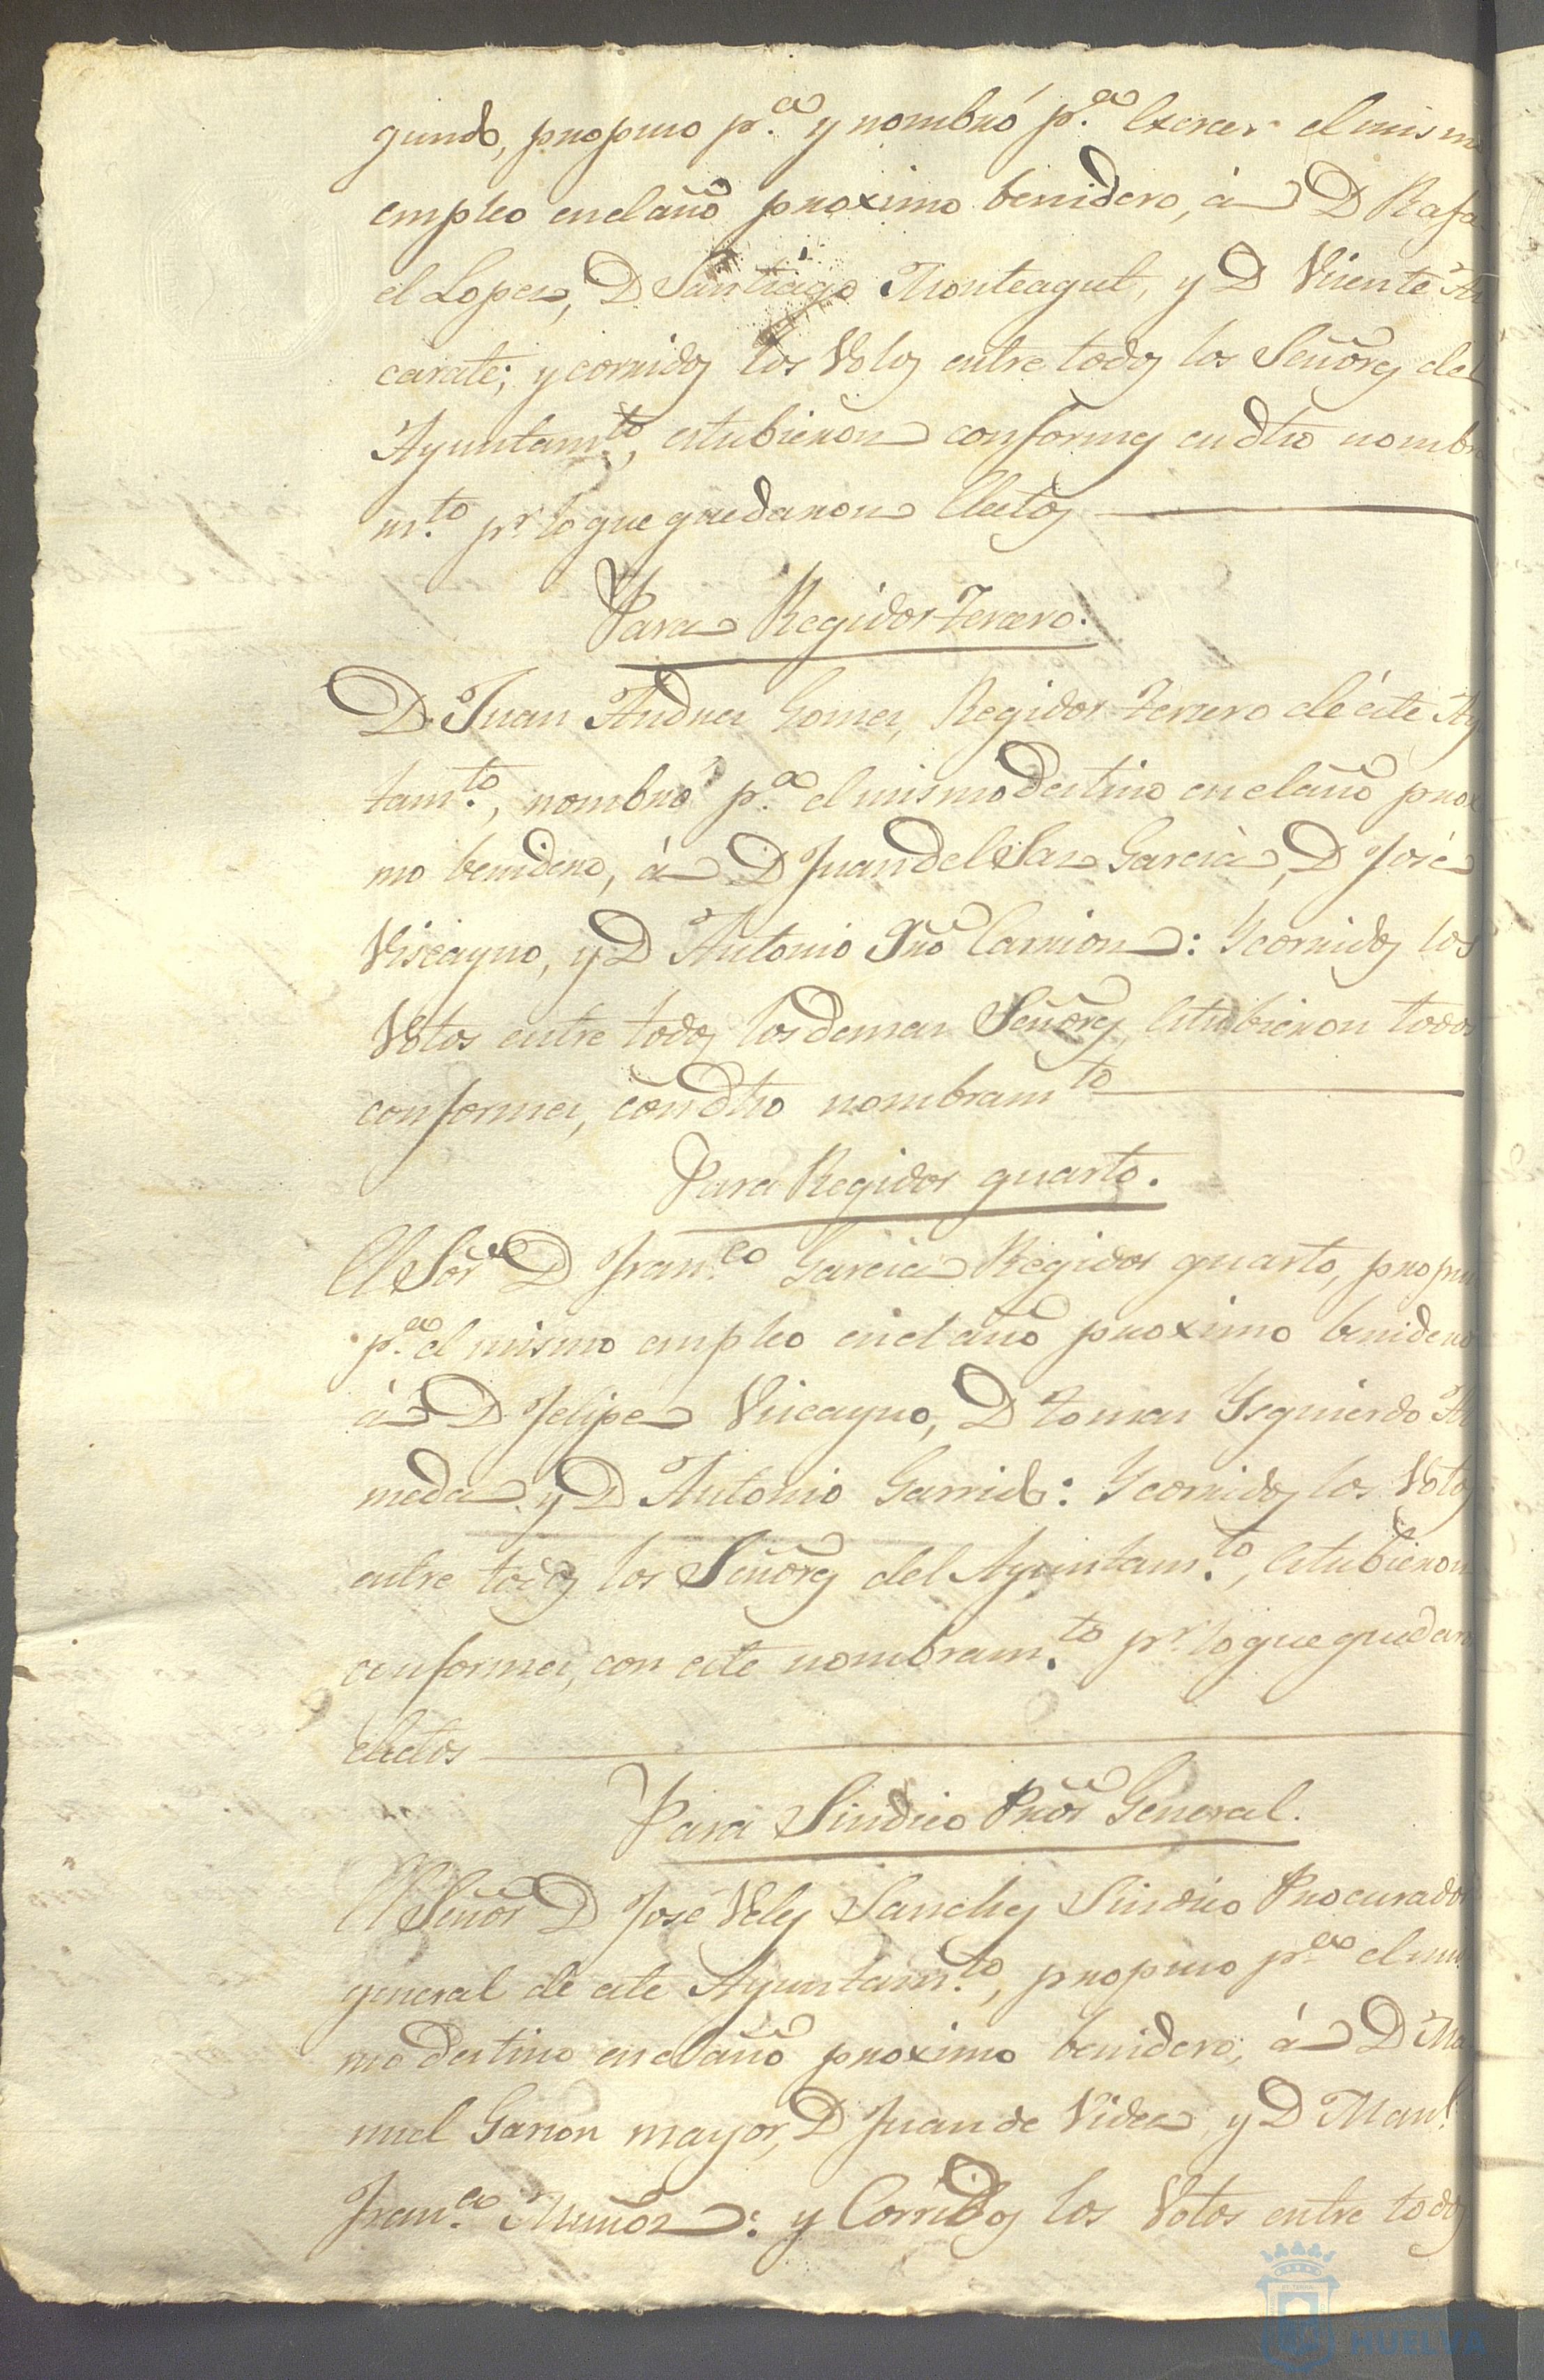 gundo, propuso p.ª y nombró p.ª Exercer el mismo
empleo en el año proximo benidero, á D Rafa
el Lopez, D Santiago Monteagut, y D Visente
carate; y corridos los Votos entre todos los Señores del
Ayuntam.to, estubieron conformes en dho nombra
m.to pr lo que quedaron Electos
Para Regidor Tercero.
D. Juan Andres Gomez, Regidor Tercero de éste Ay
tam.to, nombró p.ª el mismo destino en el año proxi
mo benidero, á D Juan del Saz Garcia, D José
Viscayno, y D Antonio Carrion: Y corridos los
Votos entre todos los demas Señores, Estubieron todos
conformes, con dho nombramto
Para Regidor quarto.
El Sor D Fran.co Garcia Regidor quarto, propuso
p.ª el mismo empleo en el año proximo benidero
á D. Felipe Viscayno, D tomas Ysquierdo
meda y D Antonio Garrido: Y corridos los Votos
entre todos los Señores del Ayuntam.to, Estubieron
conformes, con este nombram.to pr lo que quedaron
electos
Para Sindico Pror General.
El Señor D José Velez Sanchez Sindico Procurador
general de este Ayuntam.to, propuso p.ª el mis
mo destino en el año proximo benidero, á D Ma
nuel Garzon mayor, D Juan de Vides y D Manl
Fran.co Muñoz: y Corridos los Votos entre todos
HUELVA